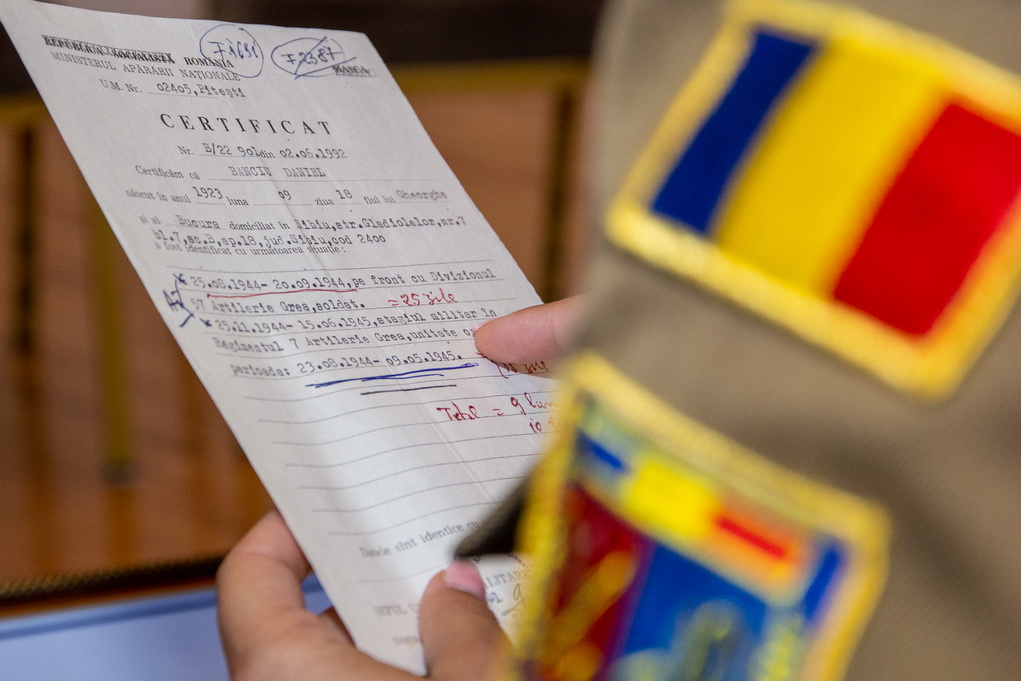 F 1691 F 2387
REPUBLICA SOCIALISTĂ ROMÂNIA
MINISTERUL APĂRĂRII NAȚIONALE
U.M. Nr. 02405,Pitești
CERTIFICAT
Nr. B/22 901 din 02.06.1992
Certificăm că BANCIU DANIEL
născut în anul 1923 luna 09 ziua 18 fiul lui Gheorghe
și al Bucura domiciliat în Sibiu,str.Gladiolelor,nr.7
bl.7,sc.B,ap.18,jud.Sibiu,cod 2400
a fost identificat cu următoarea situație:
25.08.1944- 20.09.1944,pe front cu Divizionul
57 Artilerie Grea,soldat. =25 zile
25.11.1944- 15.06.1945,stagiul militar în
Regimentul 7 Artilerie Grea,unitate
perioada: 23.08.1944- 09.05.1945.
Total = 9 luni
10
Datele sînt identice cu